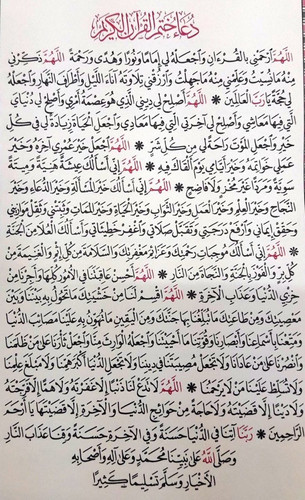 دُعَاءُ خَتْمِ القُرْآنِ الكَرِيمِ
اللَّهُمَّ ارْحَمْنِي بِالقُرْءَانِ وَاجْعَلْهُ لِي إِمَامًا وَنُورًا وَهُدًى وَرَحْمَةً * اللَّهُمَّ ذَكِّرْنِي
مِنْهُ مَانَسِيتُ وَعَلِّمْنِي مِنْهُ مَاجَهِلْتُ وَارْزُقْنِي تِلَاوَتَهُ آنَاءَ اللَّيْلِ وَأَطْرَافَ النَّهَارِ وَاجْعَلْهُ
لِي حُجَّةً يَارَبَّ العَالَمِينَ * اللَّهُمَّ أَصْلِحْ لِي دِينِي الَّذِي هُوَ عِصْمَةُ أَمْرِي وَأَصْلِحْ لِي دُنْيَايَ
الَّتِي فِيهَا مَعَاشِي وَأَصْلِحْ لِي آخِرَتِي الَّتِي فِيهَا مَعَادِي وَاجْعَلِ الحَيَاةَ زِيَادَةً لِي فِي كُلِّ
خَيْرٍ وَاجْعَلِ المَوْتَ رَاحَةً لِي مِنْ كُلِّ شَرٍّ * اللَّهُمَّ اجْعَلْ خَيْرَ عُمْرِي آخِرَهُ وَخَيْرَ
عَمَلِي خَوَاتِمَهُ وَخَيْرَ أَيَّامِي يَوْمَ أَلْقَاكَ فِيهِ * اللَّهُمَّ إِنِّي أَسْأَلُكَ عِيشَةً هَنِيَّةً وَمِيتَةً
سَوِيَّةً وَمَرَدًّا غَيْرَ مُخْزٍ وَلَا فَاضِحٍ * اللَّهُمَّ إِنِّي أَسْأَلُكَ خَيْرَ المَسْأَلَةِ وَخَيْرَ الدُّعَاءِ وَخَيْرَ
النَّجَاحِ وَخَيْرَ العِلْمِ وَخَيْرَ العَمَلِ وَخَيْرَ الثَّوَابِ وَخَيْرَ الحَيَاةِ وَخَيْرَ المَمَاتِ وَثَبِّتْنِي وَثَقِّلْ مَوَازِينِي
وَحَقِّقْ إِيمَانِي وَارْفَعْ دَرَجَتِي وَتَقَبَّلْ صَلَاتِي وَاغْفِرْ خَطِيئَاتِي وَأَسْأَلُكَ العُلَا مِنَ الجَنَّةِ
* اللَّهُمَّ إِنِّي أَسْأَلُكَ مُوجِبَاتِ رَحْمَتِكَ وَعَزَائِمَ مَغْفِرَتِكَ وَالسَّلَامَةَ مِنْ كُلِّ إِثْمٍ وَالغَنِيمَةَ مِنْ
كُلِّ بِرٍّ وَالفَوْزَ بِالجَنَّةِ وَالنَّجَاةَ مِنَ النَّارِ * اللَّهُمَّ أَحْسِنْ عَاقِبَتَنَا فِي الأُمُورِ كُلِّهَا وَأَجِرْنَا مِنْ
خِزْيِ الدُّنْيَا وَعَذَابِ الآخِرَةِ * اللَّهُمَّ اقْسِمْ لَنَا مِنْ خَشْيَتِكَ مَاتَحُولُ بِهِ بَيْنَنَا وَبَيْنَ
مَعْصِيَتِكَ وَمِنْ طَاعَتِكَ مَاتُبَلِّغُنَا بِهَا جَنَّتَكَ وَمِنَ اليَقِينِ مَاتُهَوِّنُ بِهِ عَلَيْنَا مَصَائِبَ الدُّنْيَا
وَمَتِّعْنَا بِأَسْمَاعِنَا وَأَبْصَارِنَا وَقُوَّتِنَا مَاأَحْيَيْتَنَا وَاجْعَلْهُ الوَارِثَ مِنَّا وَاجْعَلْ ثَأْرَنَا عَلَى مَنْ ظَلَمَنَا
وَانْصُرْنَا عَلَى مَنْ عَادَانَا وَلَا تَجْعَلْ مُصِيبَتَنَا فِي دِينِنَا وَلَا تَجْعَلِ الدُّنْيَا أَكْبَرَ هَمِّنَا وَلَا مَبْلَغَ عِلْمِنَا
وَلَا تُسَلِّطْ عَلَيْنَا مَنْ لَا يَرْحَمُنَا * اللَّهُمَّ لَا تَدَعْ لَنَا ذَنْبًا إِلَّا غَفَرْتَهُ وَلَا هَمًّا إِلَّا فَرَّجْتَهُ
وَلَا دَيْنًا إِلَّا قَضَيْتَهُ وَلَا حَاجَةً مِنْ حَوَائِجِ الدُّنْيَا وَالآخِرَةِ إِلَّا قَضَيْتَهَا يَاأَرْحَمَ
الرَّاحِمِينَ * رَبَّنَا آتِنَا فِي الدُّنْيَا حَسَنَةً وَفِي الآخِرَةِ حَسَنَةً وَقِنَا عَذَابَ النَّارِ
وَصَلَّى اللَّهُ عَلَى نَبِيِّنَا مُحَمَّدٍ وَعَلَى آلِهِ وَأَصْحَابِهِ
الأَخْيَارِ وَسَلَّمَ تَسْلِيمًا كَثِيرًا